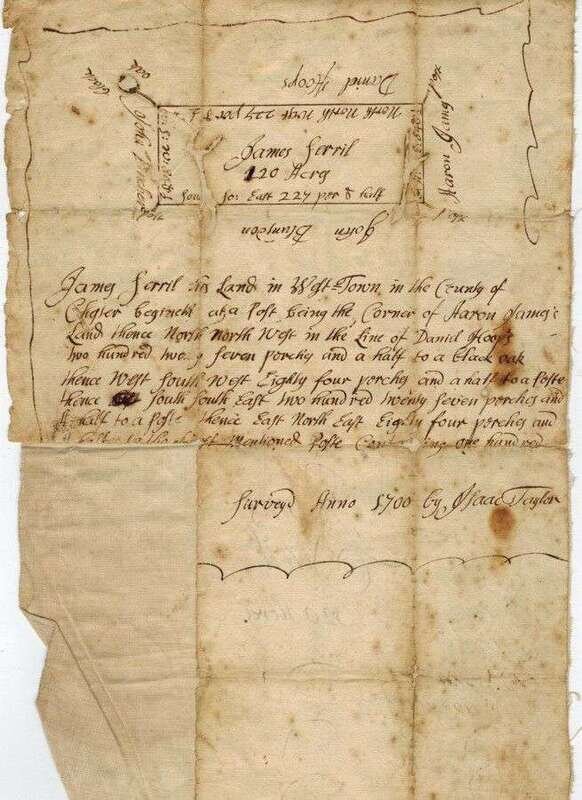 black oak
Daniel Hoops
post
North North west 227 per &
John
James Serril
120 Acrs
Aaron James
Sou So: East 227 per & half
post
post
John Blunston
James Serril his Land in West=Town in the County of
Chester begineth at a Post being the Corner of Aaron James's
Land thence North north West in the Line of Daniel Hoops
two hundred twe y seven perches and a half to a black oak
thence West South West Eighty four perches and a half to a Poste
thence South South East two hundred twenty Seven perches and
A half to a Poste thence East North East Eighty four perches and
mentioned Poste Cont ing one hundred
Survey'd Anno 1700 by Isaac Taylor